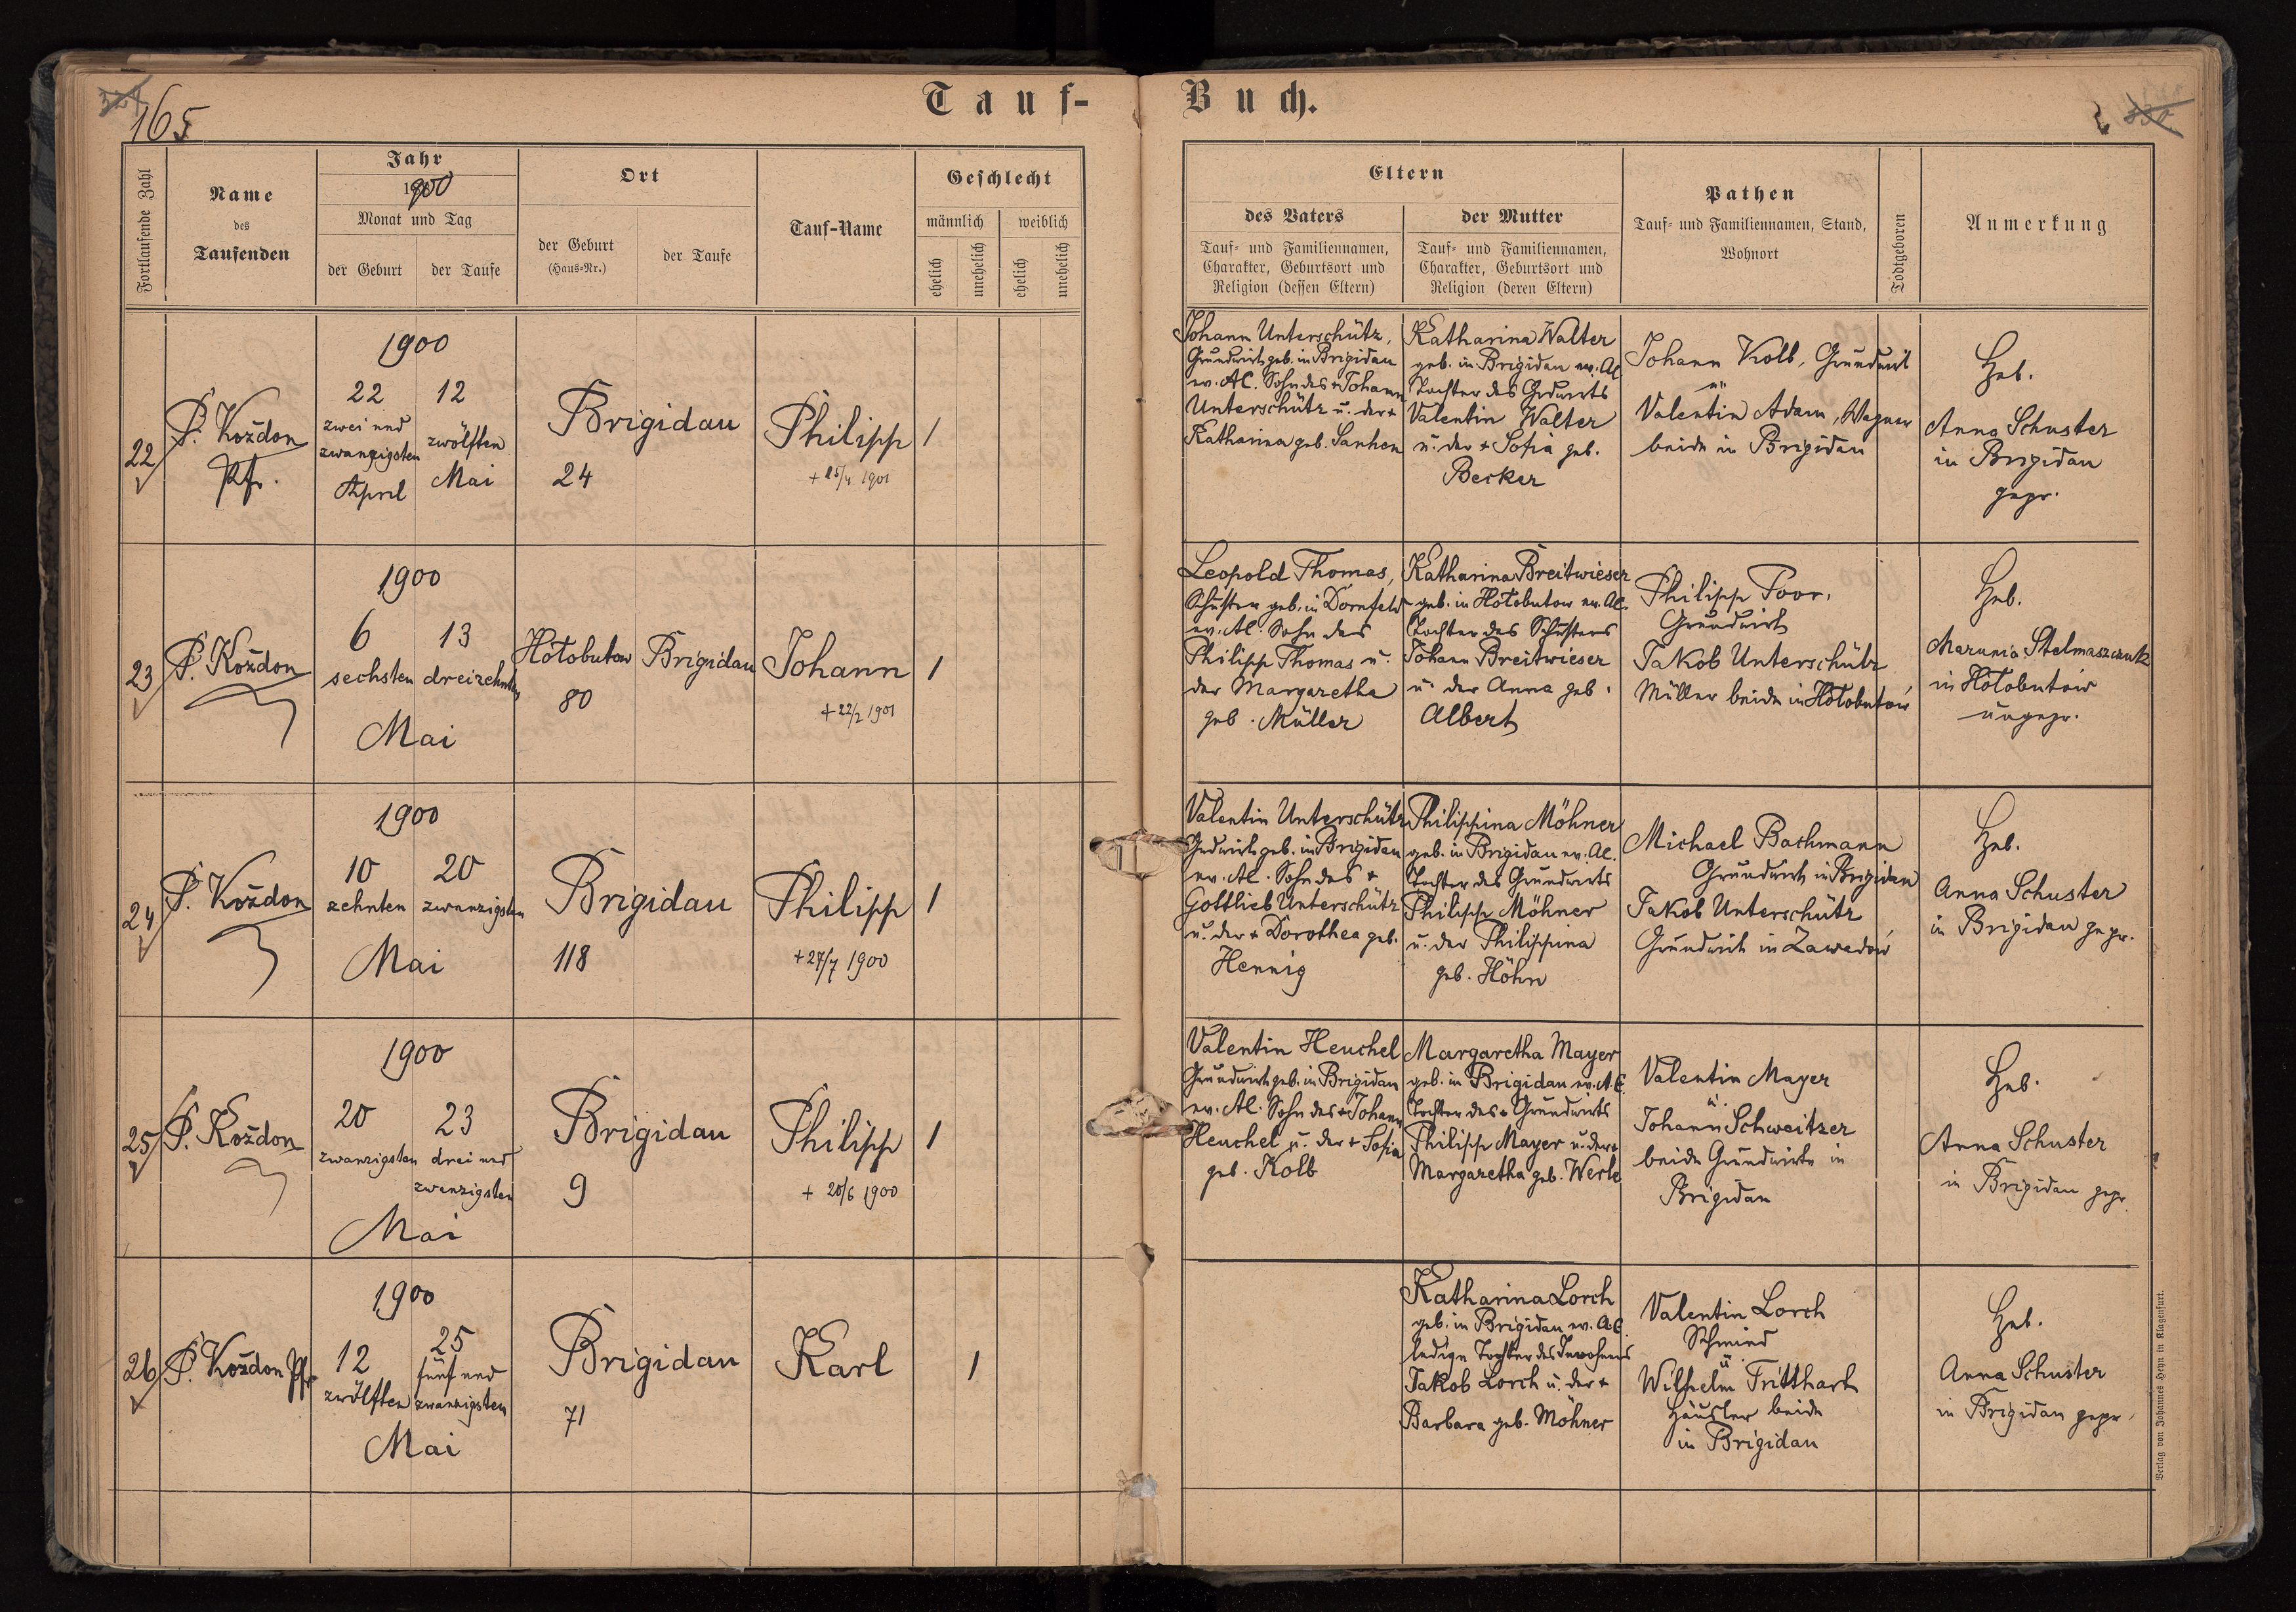 165
Tauf-
Buch.
Fortlaufende Zahl
Name
des
Taufenden
Jahr
1900
Monat und Tag
der Geburt
der Taufe
Ort
der Geburt
(Haus-Nr.)
der Taufe
Tauf-Name
Geschlecht
männlich
weiblich
ehelich
unehelich
ehelich
unehelich
Eltern
des Vaters
Tauf- und Familiennamen,
Charakter, Geburtsort und
Religion (dessen Eltern)
der Mutter
Tauf- und Familiennamen,
Charakter, Geburtsort und
Religion (deren Eltern)
Pathen
Tauf- und Familiennamen, Stand,
Wohnort
Todtgeboren
Anmerkung
22
P. Koždon
Pfr.
1900
22
zwei und
zwanzigsten
April
12
zwölften
Mai
Brigidau
24
Philipp
+ 25/4 1901
1
Johann Unterschütz,
Grundwirt geb. in Brigidau
ev. AC. Sohn des + Johann
Unterschütz u. der +
Katharina geb. Sanhen
Katharina Walter
geb. in Brigidau ev. AC
Tochter des Grdwirts
Valentin Walter
u. der + Sofia geb.
Becker
Johann Kolb, Grundwirt
u.
Valentin Adam, Wagner
beide in Brigidau
Heb.
Anna Schuster
in Brigidau
gepr.
23
P. Koždon
1900
6
sechsten
13
dreizehnten
Mai
Hołobutow
80
Brigidau
Johann
+ 22/2 1901
1
Leopold Thomas,
Schuster geb. in Dornfeld
ev. AC. Sohn des
Philipp Thomas u.
der Margaretha
geb. Müller
Katharina Breitwieser
geb. in Hołobutow ev. AC.
Tochter des Schusters
Johann Breitwieser
u. der Anna geb.
Albert
Philipp Poor,
Grundwirt
Jakob Unterschütz
Müller beide in Hołobutów
Heb.
Marunia Stelmaszczuk
in Hołobutów
ungepr.
24
P. Koždon
1900
10
zehnten
20
zwanzigsten
Mai
Brigidau
118
Philipp
+ 27/7 1900
1
Valentin Unterschütz
Grdwirt geb. in Brigidau
ev. AC. Sohn des +
Gottlieb Unterschütz
u. der + Dorothea geb.
Hennig
Philippina Möhner
geb. in Brigidau ev. AC.
Tochter des Grundwirts
Philipp Möhner
u. der Philippina
geb. Höhn
Michael Bachmann
Grundwirt in Brigidau
Jakob Unterschütz
Grundwirt in Zawadów
Heb.
Anna Schuster
in Brigidau gepr.
25
P. Koždon
1900
20
zwanzigsten
23
drei und
zwanzigsten
Mai
Brigidau
9
Philipp
+ 20/6 1900
1
Valentin Heuchel
Grundwirt geb. in Brigidau
ev. AC. Sohn des + Johann
Heuchel u. der + Sofia
geb. Kolb
Margaretha Mayer
geb. in Brigidau ev. A.C.
Tochter des + Grundwirts
Philipp Mayer u. der +
Margaretha geb. Werle
Valentin Mayer
u.
Johann Schweitzer
beide Grundwirte in
Brigidau
Heb.
Anna Schuster
in Brigidau gepr
26
P. Koždon Pfr
1900
12
zwölften
25
fünf und
zwanzigsten
Mai
Brigidau
71
Karl
1
Katharina Lorch
geb. in Brigidau ev. AC.
ledige Tochter des Inwohners
Jakob Lorch u. der +
Barbara geb. Möhner
Valentin Lorch
Schmied
u.
Wilhelm Tritthart
Häusler beide
in Brigidau
Heb.
Anna Schuster
in Brigidau gepr.
Verlag von Johannes Heyn in Klagenfurt.